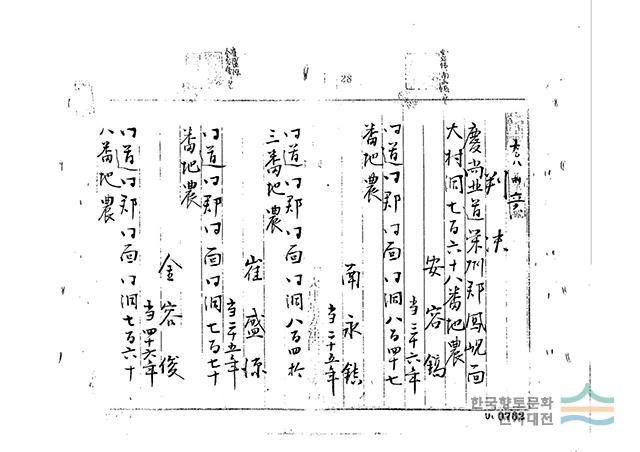 28
大、八、刑、六
判決
慶尚北道栄州郡鳳峴面
大村洞七百六十八番地農
安容鎬
当二十六年
同道同郡同面同洞八百四十七
番地農
南永鎮
当二十五年
同道同郡同面同洞八百四拾
三番地農
崔盛源
当二十五年
同道同郡同面同洞七百七十
番地農
金容俊
当四十六年
同道同郡同面同洞七百六十
八番地農
한국향토문화
전자대전
0763